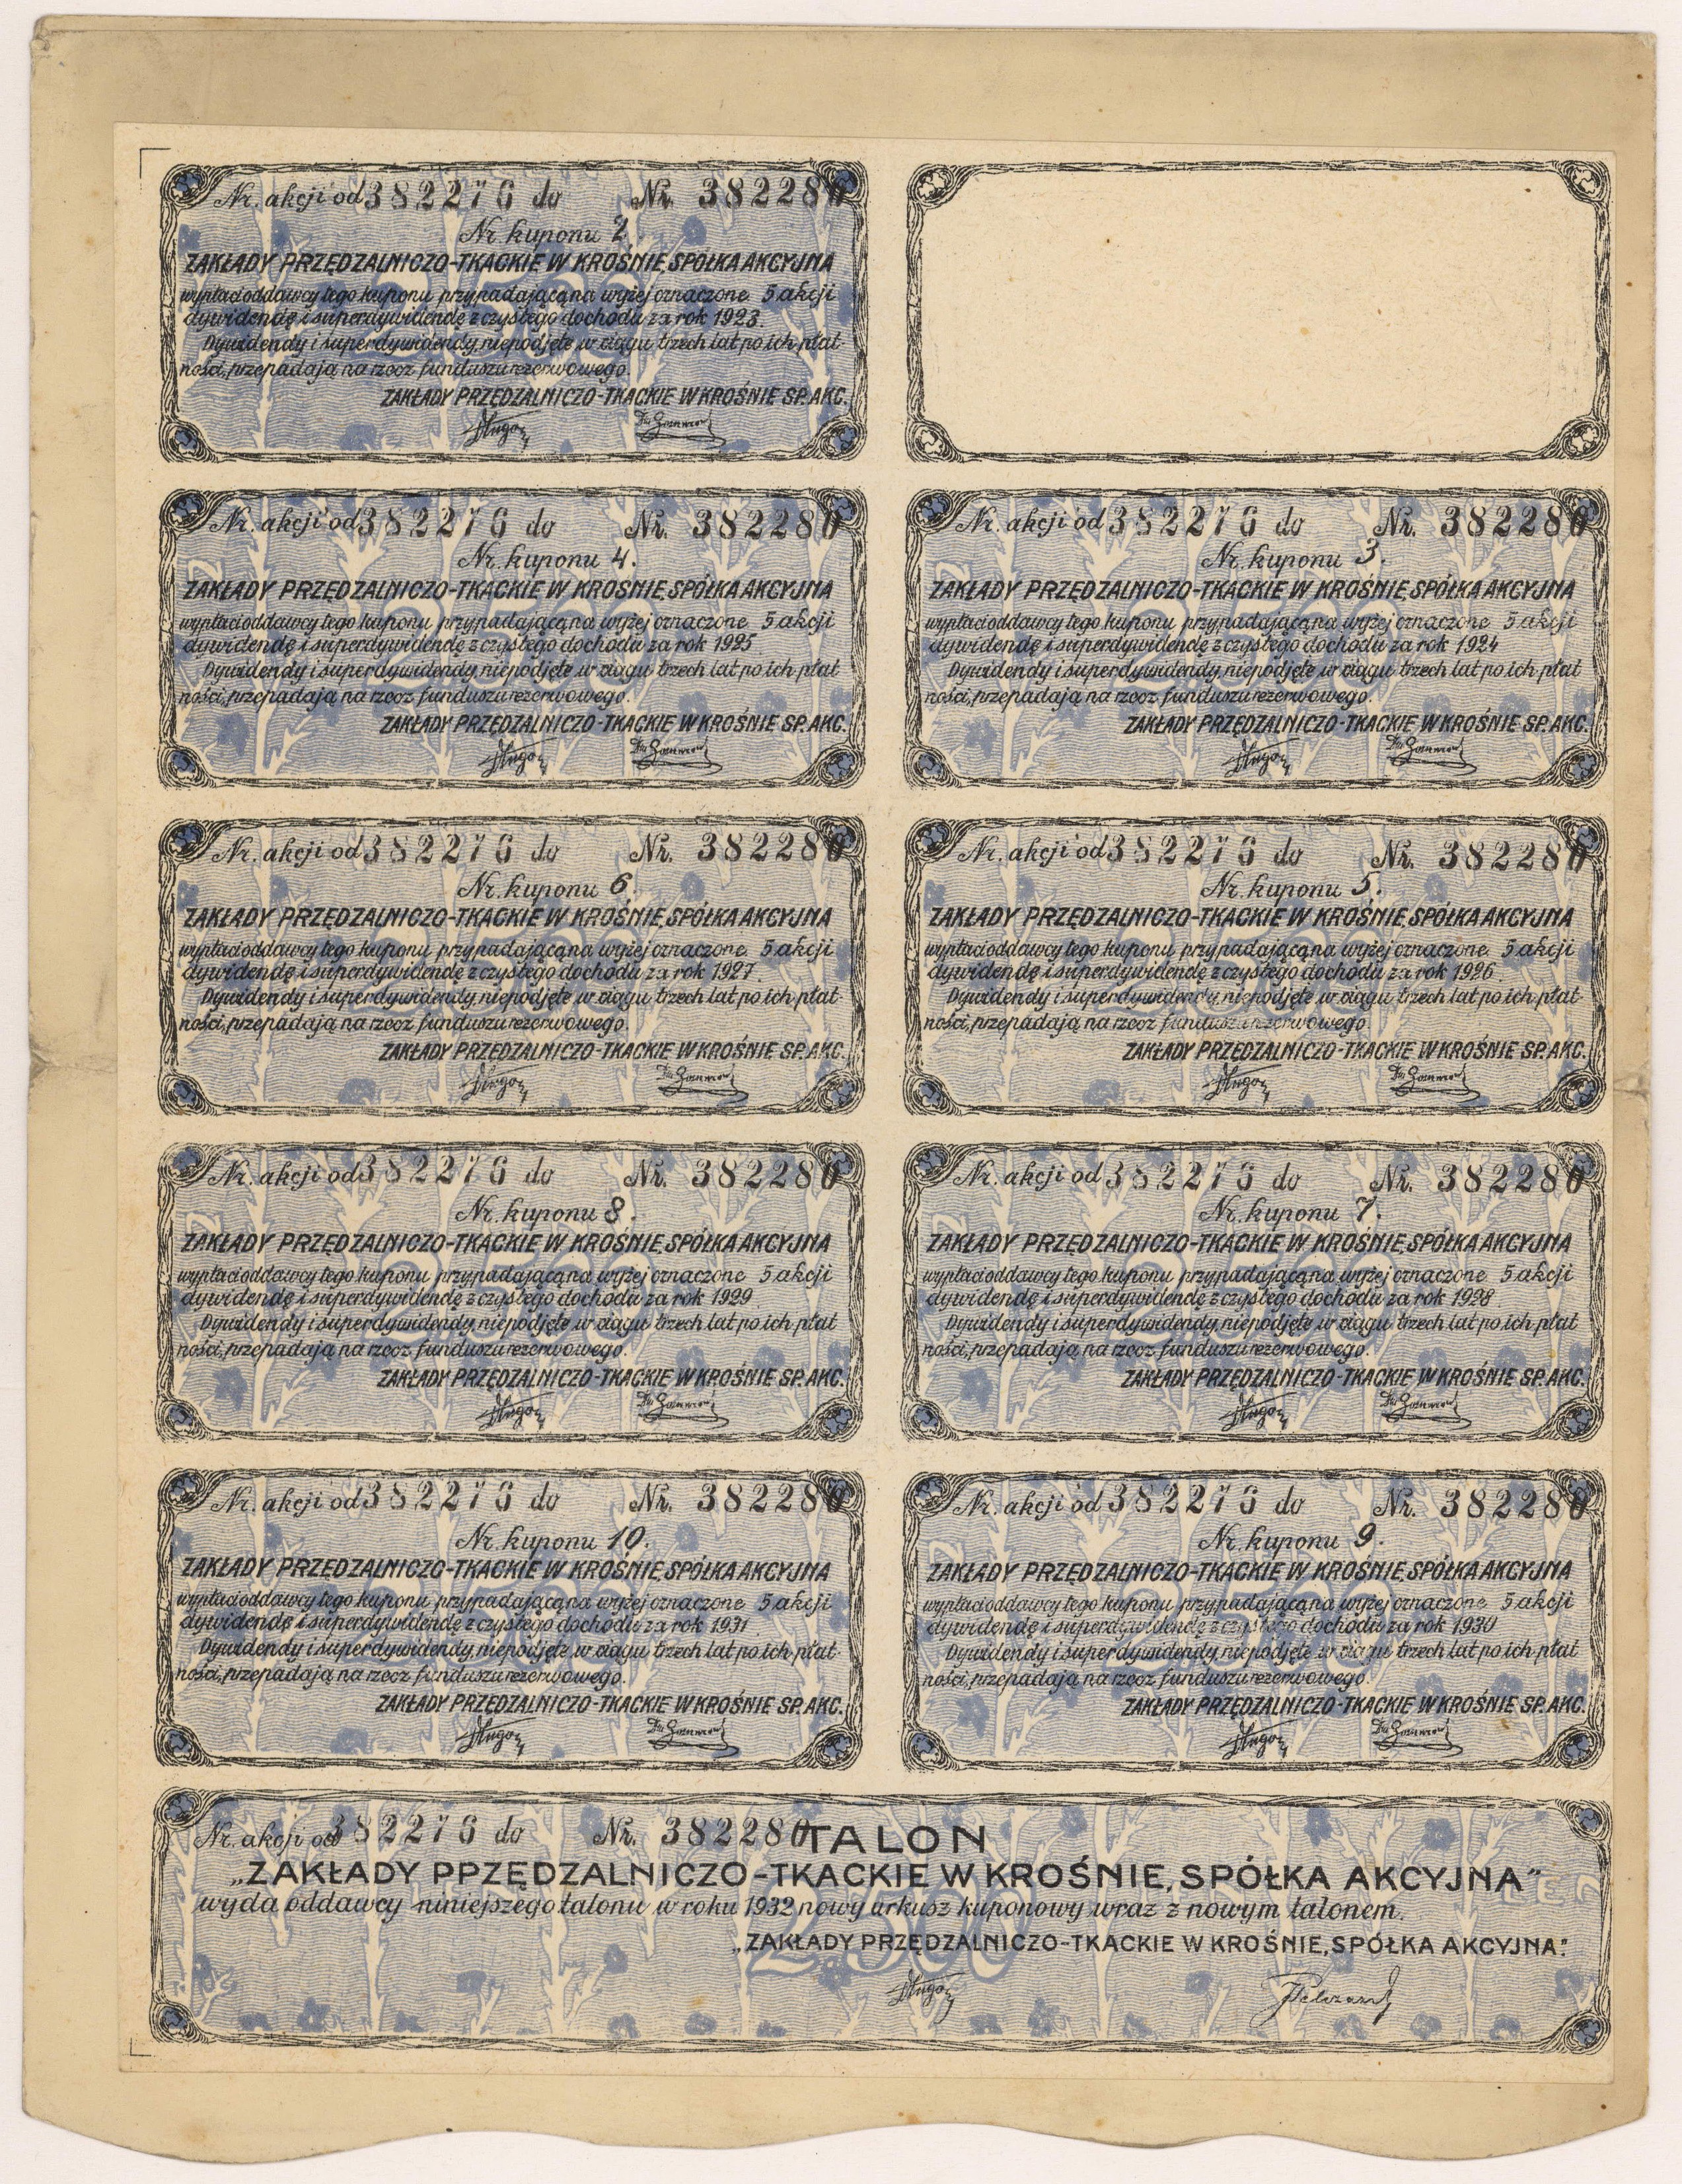 Nr. akcji od 382276 do Nr. 382280
Nr. kuponu 2.
ZAKŁADY PRZĘDZALNICZO-TKACKIE W KROŚNIE, SPÓŁKA AKCYJNA
wypłaci oddawcy tego kuponu przypadającą na wyżej oznaczone 5 akcji
dywidendę i superdywidendę z czystego dochodu za rok 1923.
Dywidendy i superdywidendy, niepodjęte w ciągu trzech lat po ich płat-
ności, przepadają na rzecz funduszu rezerwowego.
ZAKŁADY PRZĘDZALNICZO-TKACKIE W KROŚNIE SP. AKC.
Nr. akcji od 382276 do Nr. 382280
Nr. kuponu 4.
ZAKŁADY PRZĘDZALNICZO-TKACKIE W KROŚNIE, SPÓŁKA AKCYJNA
wypłaci oddawcy tego kuponu przypadającą na wyżej oznaczone 5 akcji
dywidendę i superdywidendę z czystego dochodu za rok 1925
Dywidendy i superdywidendy, niepodjęte w ciągu trzech lat po ich płat
ności, przepadają na rzecz funduszu rezerwowego.
ZAKŁADY PRZĘDZALNICZO-TKACKIE W KROŚNIE SP. AKC.
Nr. akcji od 382276 do Nr. 382280
Nr. kuponu 3.
ZAKŁADY PRZĘDZALNICZO-TKACKIE W KROŚNIE, SPÓŁKA AKCYJNA
wypłaci oddawcy tego kuponu przypadającą na wyżej oznaczone 5 akcji
dywidendę i superdywidendę z czystego dochodu za rok 1924
Dywidendy i superdywidendy, niepodjęte w ciągu trzech lat po ich płat
ności, przepadają na rzecz funduszu rezerwowego.
ZAKŁADY PRZĘDZALNICZO-TKACKIE W KROŚNIE SP. AKC.
Nr. akcji od 382276 do Nr. 382280
Nr. kuponu 6.
ZAKŁADY PRZĘDZALNICZO-TKACKIE W KROŚNIE, SPÓŁKA AKCYJNA
wypłaci oddawcy tego kuponu przypadającą na wyżej oznaczone 5 akcji
dywidendę i superdywidendę z czystego dochodu za rok 1927
Dywidendy i superdywidendy, niepodjęte w ciągu trzech lat po ich płat-
ności, przepadają na rzecz funduszu rezerwowego.
ZAKŁADY PRZĘDZALNICZO-TKACKIE W KROŚNIE SP. AKC.
Nr. akcji od 382276 do Nr. 382280
Nr. kuponu 5.
ZAKŁADY PRZĘDZALNICZO-TKACKIE W KROŚNIE, SPÓŁKA AKCYJNA
wypłaci oddawcy tego kuponu przypadającą na wyżej oznaczone 5 akcji
dywidendę i superdywidendę z czystego dochodu za rok 1926
Dywidendy i superdywidendy, niepodjęte w ciągu trzech lat po ich płat-
ności, przepadają na rzecz funduszu rezerwowego.
ZAKŁADY PRZĘDZALNICZO-TKACKIE W KROŚNIE SP. AKC.
Nr. akcji od 382276 do Nr. 382280
Nr. kuponu 8.
ZAKŁADY PRZĘDZALNICZO-TKACKIE W KROŚNIE, SPÓŁKA AKCYJNA
wypłaci oddawcy tego kuponu przypadającą na wyżej oznaczone 5 akcji
dywidendę i superdywidendę z czystego dochodu za rok 1929
Dywidendy i superdywidendy, niepodjęte w ciągu trzech lat po ich płat
ności, przepadają na rzecz funduszu rezerwowego.
ZAKŁADY PRZĘDZALNICZO-TKACKIE W KROŚNIE SP. AKC.
Nr. akcji od 382276 do Nr. 382280
Nr. kuponu 7.
ZAKŁADY PRZĘDZALNICZO-TKACKIE W KROŚNIE, SPÓŁKA AKCYJNA
wypłaci oddawcy tego kuponu przypadającą na wyżej oznaczone 5 akcji
dywidendę i superdywidendę z czystego dochodu za rok 1928
Dywidendy i superdywidendy, niepodjęte w ciągu trzech lat po ich płat
ności, przepadają na rzecz funduszu rezerwowego.
ZAKŁADY PRZĘDZALNICZO-TKACKIE W KROŚNIE SP. AKC.
Nr. akcji od 382276 do Nr. 382280
Nr. kuponu 10.
ZAKŁADY PRZĘDZALNICZO-TKACKIE W KROŚNIE, SPÓŁKA AKCYJNA
wypłaci oddawcy tego kuponu przypadającą na wyżej oznaczone 5 akcji
dywidendę i superdywidendę z czystego dochodu za rok 1931
Dywidendy i superdywidendy, niepodjęte w ciągu trzech lat po ich płat-
ności, przepadają na rzecz funduszu rezerwowego.
ZAKŁADY PRZĘDZALNICZO-TKACKIE W KROŚNIE SP. AKC.
Nr. akcji od 382276 do Nr. 382280
Nr. kuponu 9.
ZAKŁADY PRZĘDZALNICZO-TKACKIE W KROŚNIE, SPÓŁKA AKCYJNA
wypłaci oddawcy tego kuponu przypadającą na wyżej oznaczone 5 akcji
dywidendę i superdywidendę z czystego dochodu za rok 1930
Dywidendy i superdywidendy, niepodjęte w ciągu trzech lat po ich płat
ności, przepadają na rzecz funduszu rezerwowego.
ZAKŁADY PRZĘDZALNICZO-TKACKIE W KROŚNIE SP. AKC.
Nr. akcji od 382276 do Nr. 382280 TALON
„ZAKŁADY PPZĘDZALNICZO-TKACKIE W KROŚNIE, SPÓŁKA AKCYJNA"
wyda oddawcy niniejszego talonu w roku 1932 nowy arkusz kuponowy wraz z nowym talonem.
2500
„ZAKŁADY PRZĘDZALNICZO-TKACKIE W KROŚNIE, SPÓŁKA AKCYJNA."